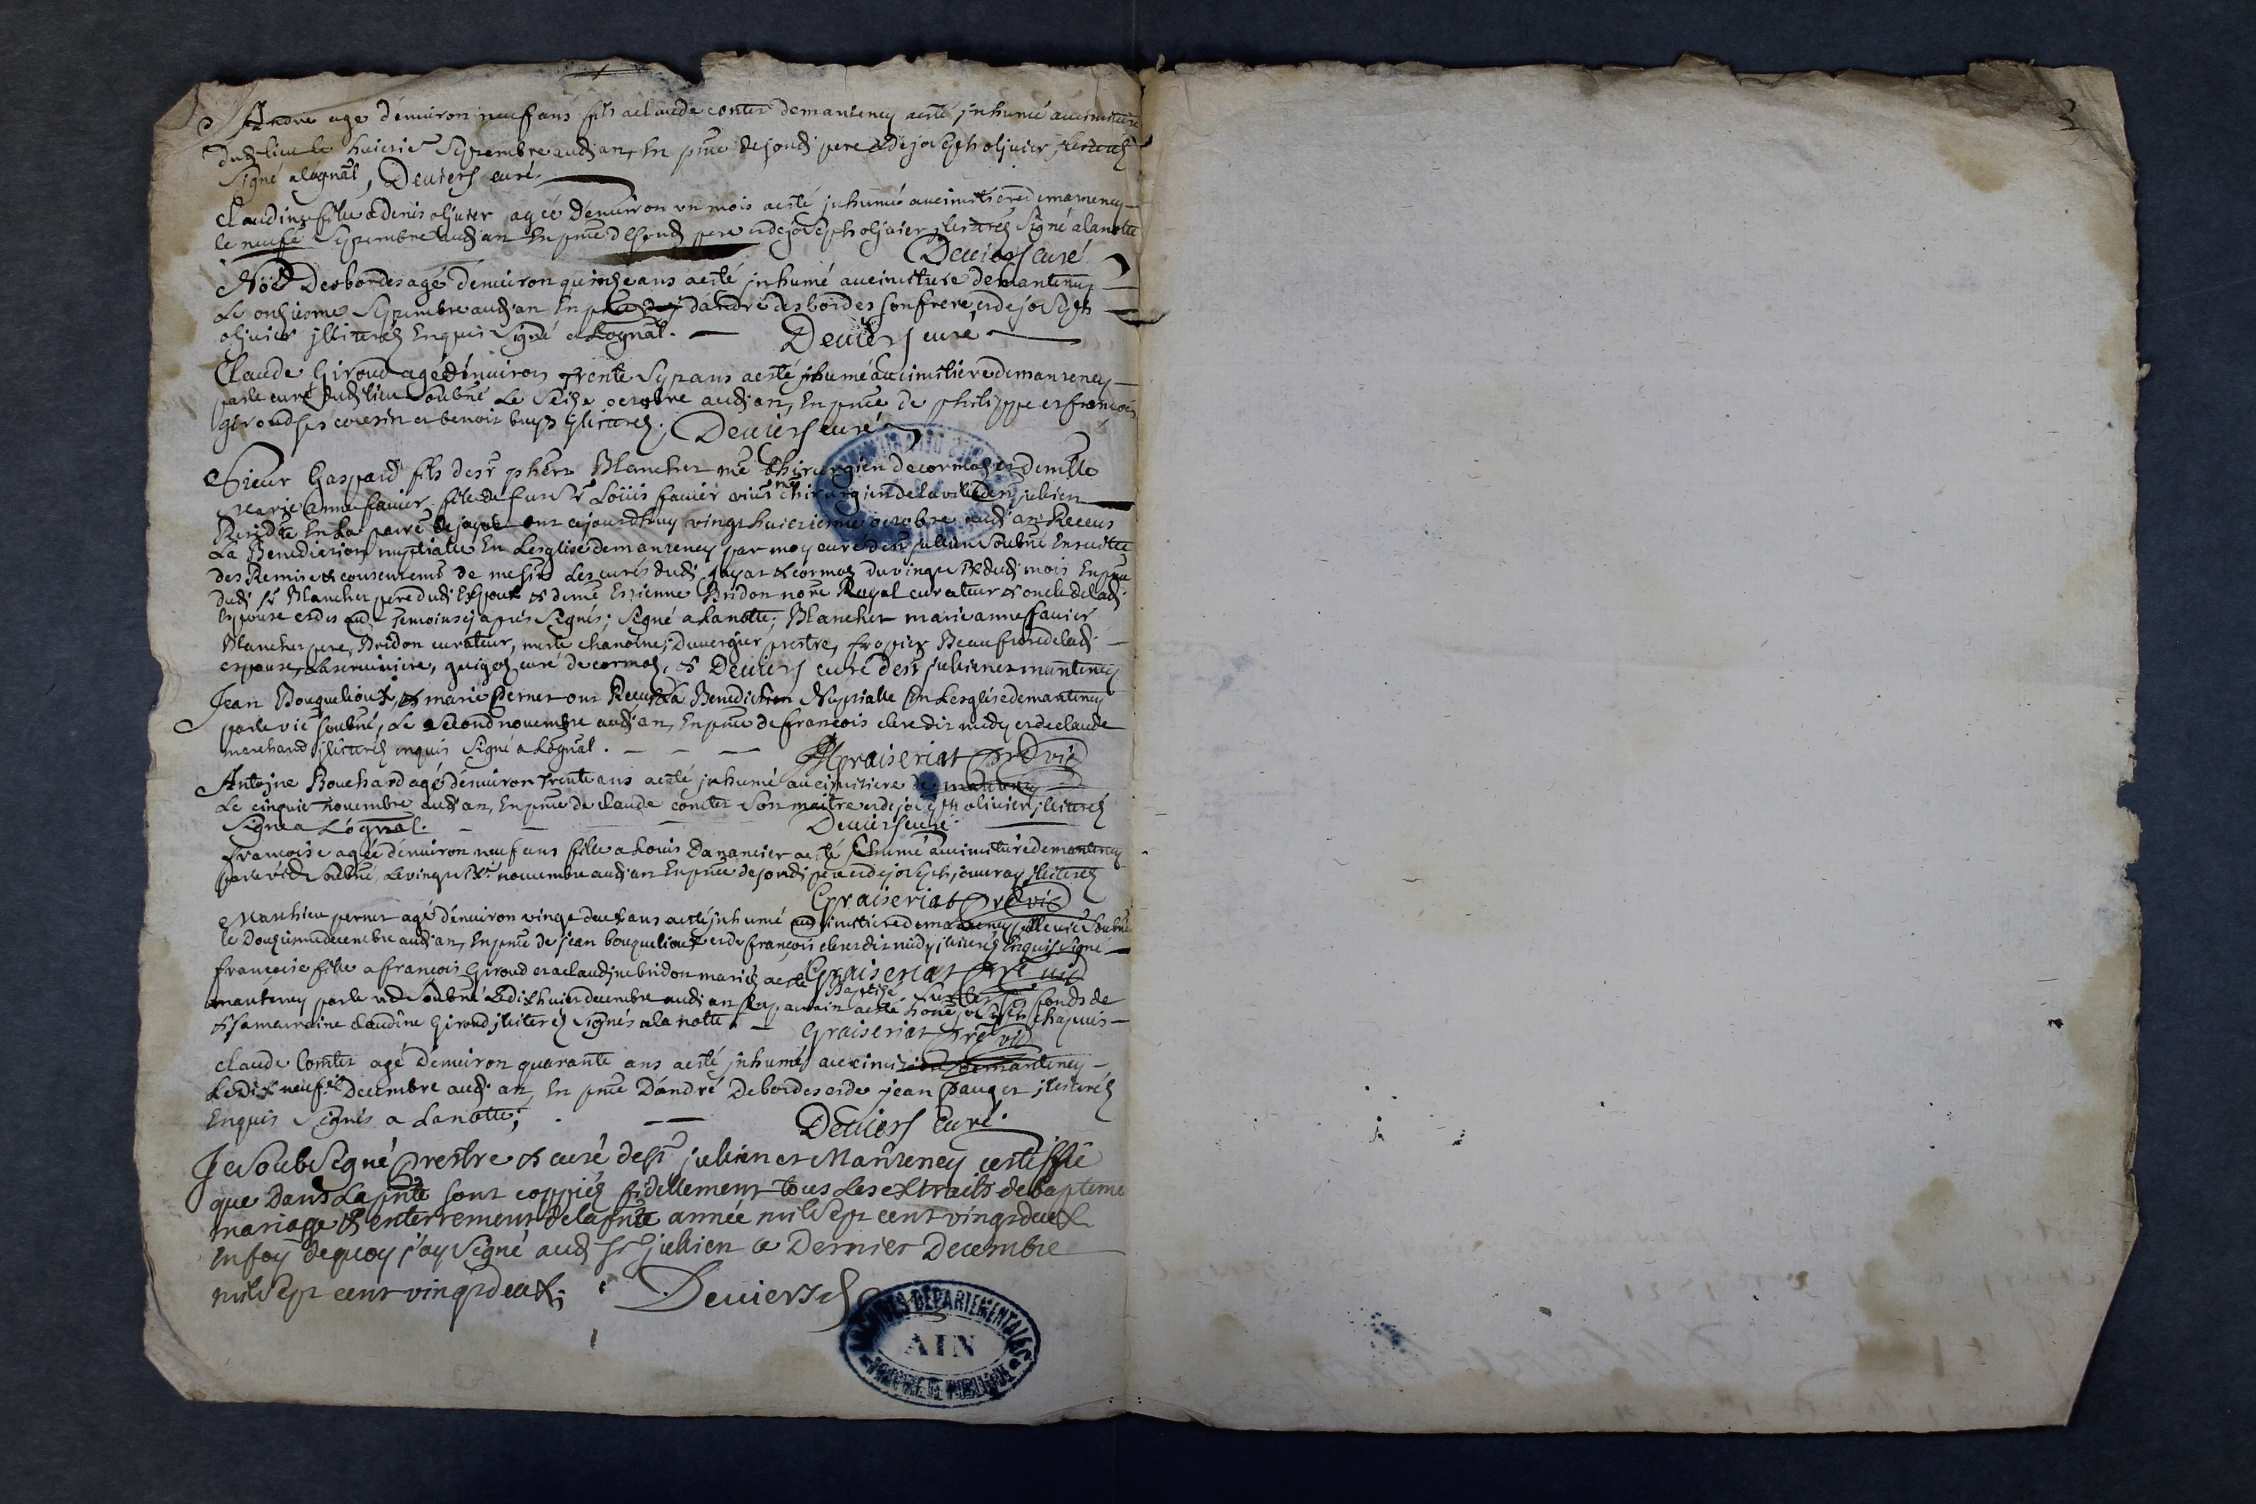 André agé d'enuiron neuf ans fils a claude contet de mantenay a esté inhumé au cimitiere
dud lieu le huitie septembre aud an, en pnce dejoud pere et de joseph oliuier illiterés
Signé a l'ognal, Deuiers curé
Claudine fille a denis oliuier agée d'enuiron vn mois a esté inhumé au cimitiere de mantenay
le neufe septembre aud an en pnce dejoud pere et de joseph oliuier illiterés Signé a lanotte
Deuiers curé
Noël Desbordes agé d'enuiron quinze ans a esté inhumé au cimitiere de mantenay
Le onzieme septembre aud an en pnce d'andré desbordes son frere et de joseph
oliuier illiterés enquis Signé a Lognal. Deuiers curé
Claude Giroud agé d'enuiron trente sept ans a esté inhumé au cimitiere de mantenay
par le curé dud lieu soubné Le seize octobre aud an, en pnce de philippe et francois
giroud ses cousin et benoit buys illiterés; Deuiers curé
Sieur Gaspard fils de sr phert Blanchet me chirurgien de cormoz et demlle
marie anne fauier fille de feu sr Loüis fauier viuant me chirurgien de la ville de st julien
Residte en La parre de jayat ont cejourdhuy vingt huitieme octobre aud an Receus
La Benediction nuptialle en Lesglise de mantenay par moy curé de st jullien soubné ensuitte
des Remises et consentems de messirs Les curés dud jayat et cormoz du vingt dud mois en pnce
dud sr Blanchet pere dud Espoux et de me Estienne Bridon nore Royal curateur et oncle de lad
Espouse et des temoins cy apres signés; signé a Lanotte; Blanchet marie anne fauier
Blanchet pere, Bridon curateur, chanoine, Duuergier prestre, fropier Beaufrere de lad
espouse, curé de cormoz, et Deuiers curé de st julien et mantenay
Jean Bouquelioux, et marie Pernet ont Receu La Benediction Nuptialle en Lesglise de mantenay
par le vice soubné, Le second nouembre aud an, en pnce de francois clere dit midy et de claude
marchand illiterés enquis signé a Lognal. Graiseriat pre vic
Antoine Bouchard agé d'enuiron trente ans a esté inhumé au cimitiere de mantenay
Le cinquie nouembre aud an, en pnce de claude contet son maitre et de joseph oliuier illiterés
Signé a Lognal. Deuiers curé
francoise agée d'enuiron neuf ans fille a Louis Dananeier a esté inhumé au cimitiere de mantenay
par le vic soubné, Le vingt nouembre aud an en pnce dejoud pere et de joseph jouuray illiterés
Graiseriat pre vic
Mathieu pernet agé d'enuiron vingt deux ans a esté inhumé au cimitiere de mantenay par le vice soubné
le douzieme decembre aud an, en pnce de jean bouquelioux et de francois clere dit midy illiterés enquis signé
Graiseriat pre vic
francoise fille a francois Giroud et a claudine bridon mariés a esté Baptisé sur les fonds de
mantenay par le vic soubné Le dix huit decembre aud an son parrain a esté joseph chapuis
et sa marraine claudine Giroud illiterés signés a la notte. Graiseriat pre vic
Claude Contet agé d'enuiron quarante ans a esté inhumé au cimitiere de mantenay
Le dix neufe Decembre aud an, en pnce D'andré Debordes et de jean Pauget illiterés
Enquis signés a Lanotte; Deuiers Curé
Je Soubsigné Prestre et curé de st julien et Mantenay certiffie
que dans La pnte sont coppiés fidellement tous les extraits de bapteme
mariage et enterrement de la pnte année mil sept cent vingt deux
en foy de quoy j'ay signé aud st julien ce Dernier Decembre
mil sept cent vingt deux; Deuiers
ARCHIVES DÉPARTEMENTALES
AIN